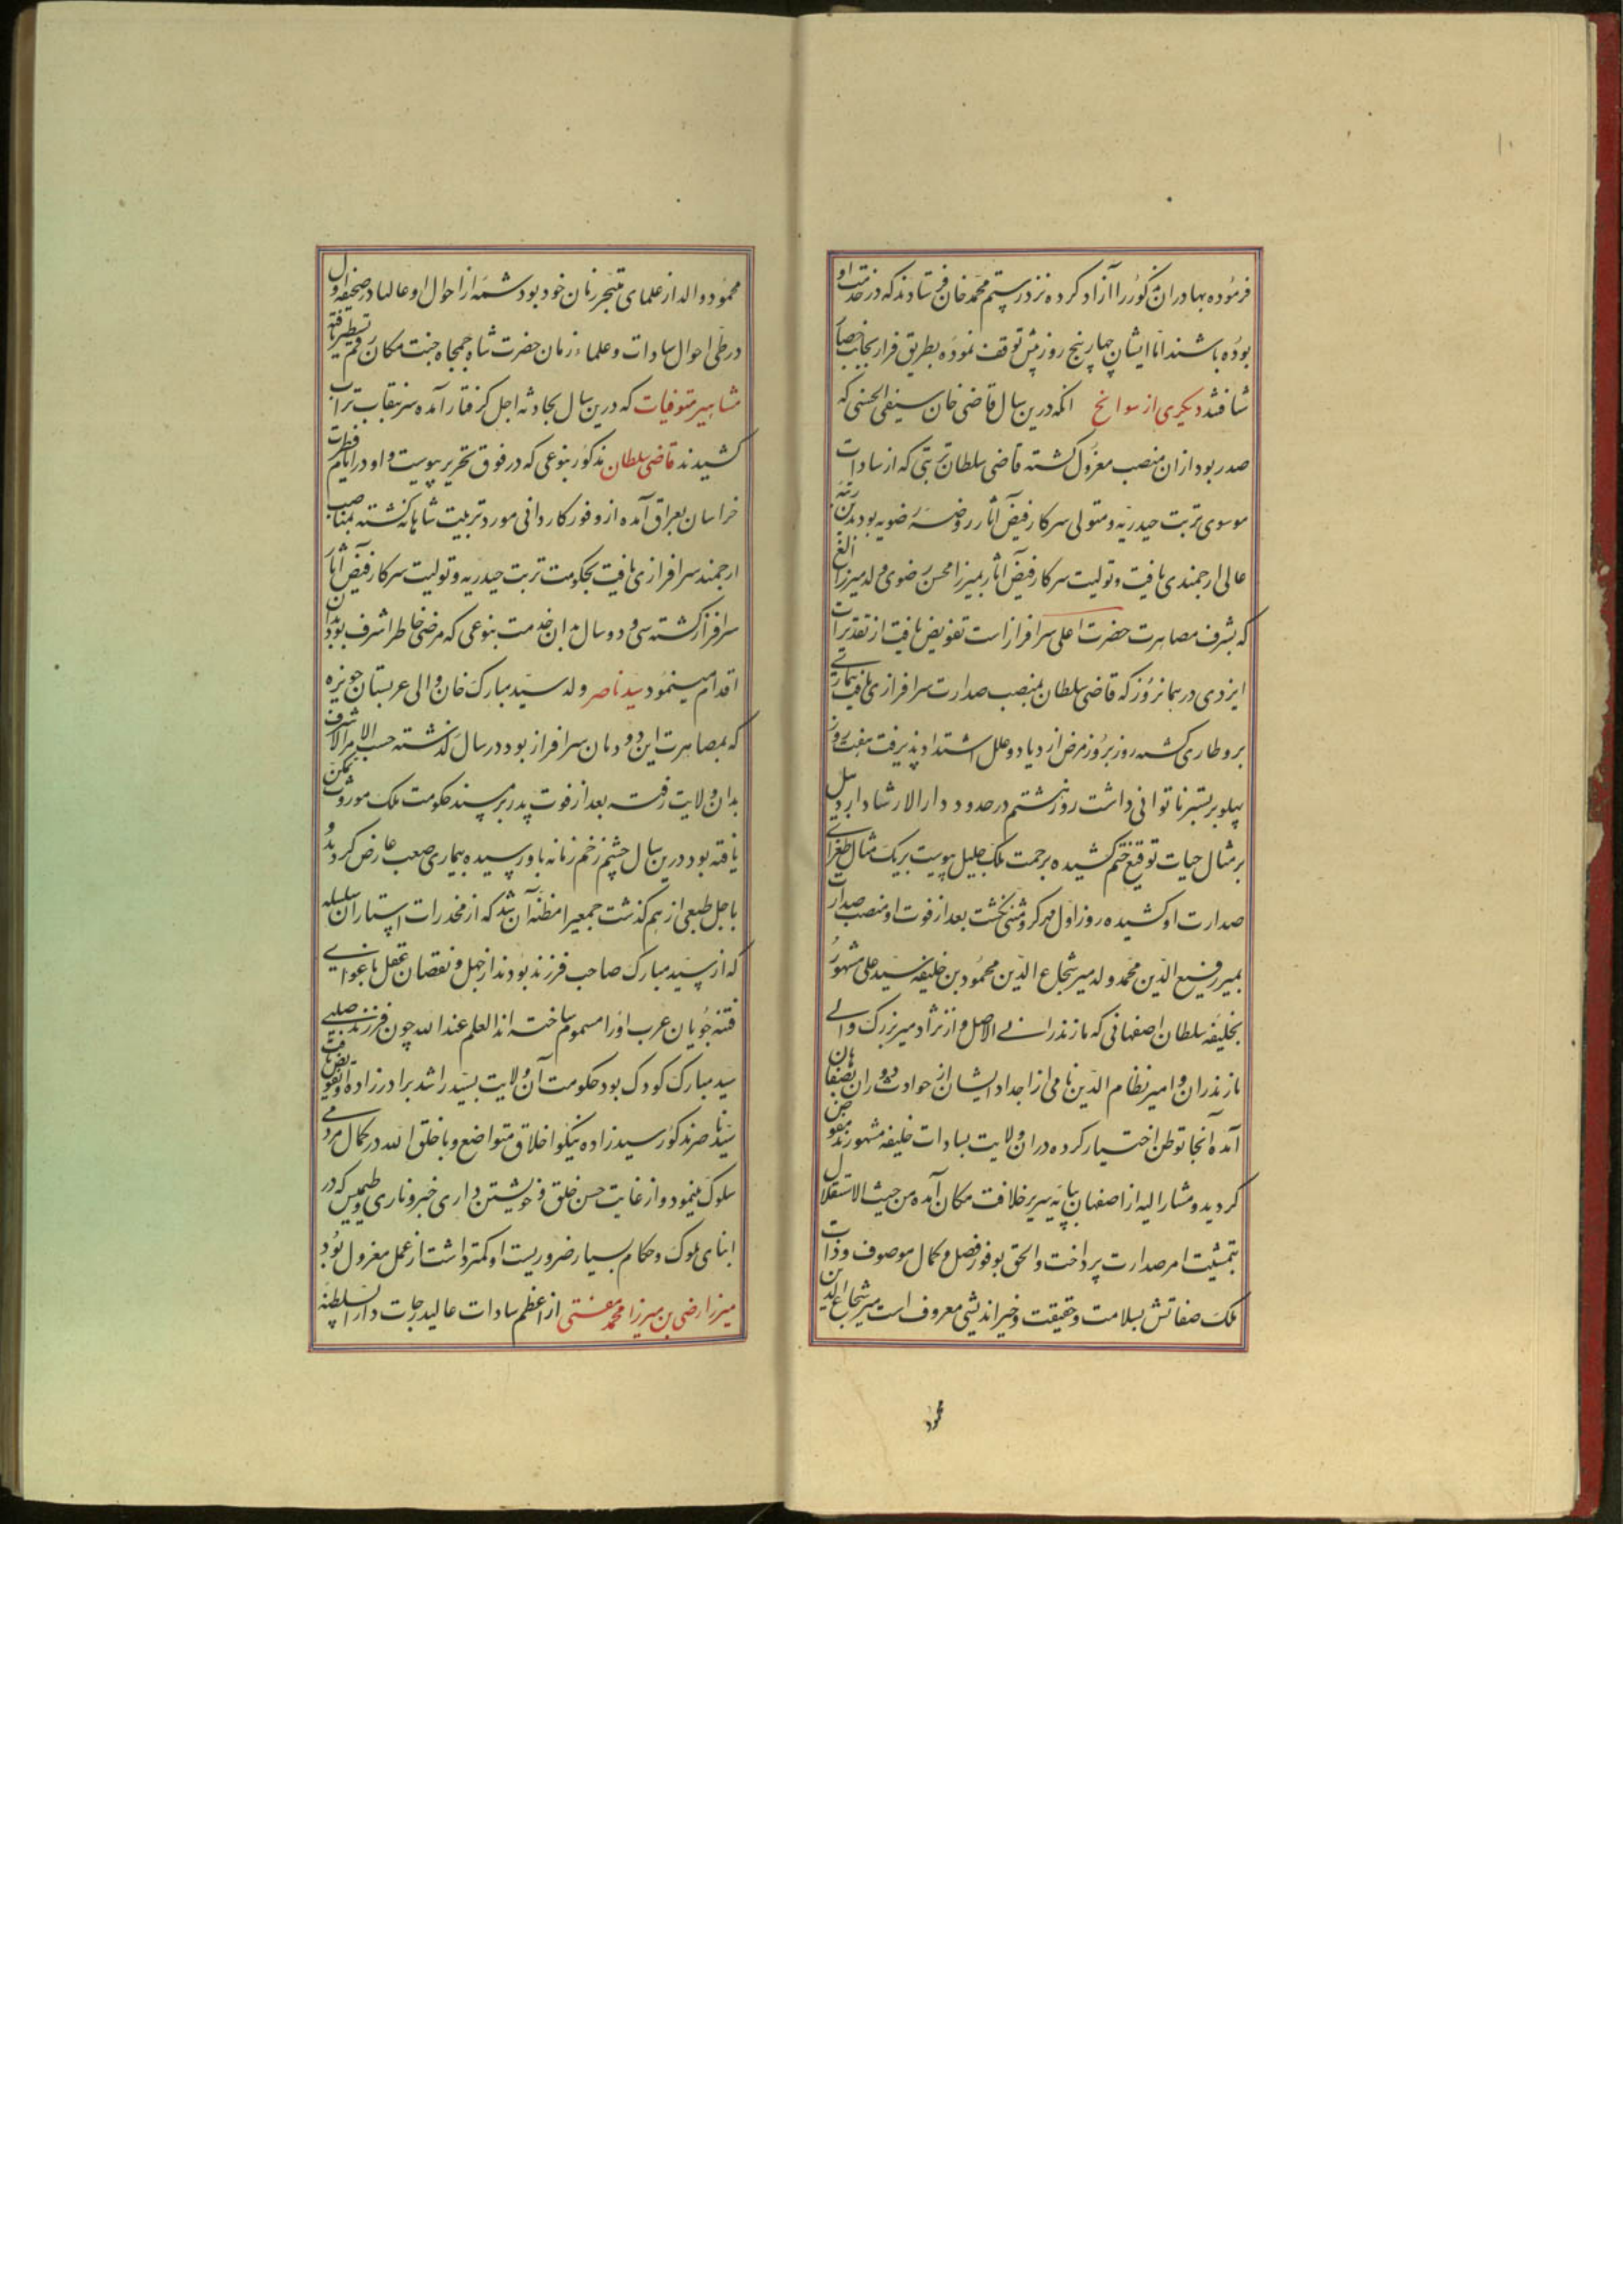 فرموده بهادران مذکور را آزاد کرده نزد رستم محمد خان فرستادند که در خدمت او
بوده باشند اما ایشان چهار پنج روز پیش توقف نموده بطریق فرار بجانب حصار
شتافتند دیگری از سوانح آنکه درین سال قاضی خان سیفی الحسنی که
صدر بود از ان منصب معزول گشته قاضی سلطان تربتی که از سادات
موسوی تربت حیدریه و متولی سرکار فیض آثار روضه رضویه بود بدین رتبه
عالی ارجمندی یافت و تولیت سرکار فیض آثار بمیرزا محسن رضوی ولد میرزا الغ
که بشرف مصاهرت حضرت اعلی سرافراز است تفویض یافت از تقدیرات
ایزدی در همانروز که قاضی سلطان بمنصب صدارت سرافرازی یافت بیماریی
برو طاری گشته روز بروز مرض ازدیاد و علل اشتداد پذیرفت هفت روز
پهلو بر بستر ناتوانی داشت روز هشتم در حدود دار الارشاد اردبیل
بر مثال حیات توقیع ختم کشیده برحمت ملک جلیل پیوست بر یک مثال طغرای
صدارت او کشیده روز اول مهر کرد و مثنی نگشت بعد از فوت او منصب صدارت
بمیر رفیع الدین محمد ولد میر شجاع الدین محمود بن خلیفه سید علی مشهور
بخلیفه سلطان اصفهانی که مازندرانی الاصل و از نژاد میر بزرگ والی
مازندران و امیر نظام الدین نامی از اجداد ایشان از حوادث دوران بصفاهان
آمده آنجا توطن اختیار کرده در ان ولایت بسادات خلیفه مشهورند مفوض
گردید و مشار الیه از اصفهان بپایه سریر خلافت مکان آمده من حیث الاستقلال
بتمشیت امر صدارت پرداخت و الحق بوفور فضل و کمال موصوف و ذات
ملک صفاتش بسلامت و حقیقت و خیراندیشی معروف است میر شجاع الدین
محمود
محمود والد از علمای متبحر زمان خود بود شمه از احوال او عالما در صحیفه اول
در طی احوال سادات و علماء زمان حضرت شاه جمجاه جنت مکان رقم تسطیر یافته
مشاهیر متوفیات که درین سال بحادثه اجل گرفتار آمده سر بنقاب تراب
کشیدند قاضی سلطان مذکور بنوعی که در فوق تحریر پیوست و او در ایام فطرت
خراسان بعراق آمده از وفور کاردانی مورد تربیت شاهانه گشته بمناصب
ارجمند سرافرازی یافت بحکومت تربت حیدریه و تولیت سرکار فیض آثار
سرافراز گشته سی و دو سال بدان خدمت بنوعی که مرضی خاطر اشرف بود بدان
اقدام مینمود سید ناصر ولد سید مبارک خان والی عربستان حویزه
که بمصاهرت این دودمان سرافراز بود در سال گذشته حسب الامر الاشرف
بدان ولایت رفته بعد از فوت پدر بر مسند حکومت ملک موروث تمکن
یافته بود درین سال چشم زخم زمانه باو رسیده بیماری صعب عارض گردید و
باجل طبعی از هم گذشت جمعی را مظنه آن شد که از مخدرات استار ان سلسله
که از سید مبارک صاحب فرزند بودند از جهل و نقصان عقل باغوای
فتنه جویان عرب او را مسموم ساخته اند العلم عند الله چون فرزند صلبی
سید مبارک کودک بود حکومت آن ولایت بسید راشد برادرزاده او تفویض یافت
سید ناصر مذکور سیدزاده نیکو اخلاق متواضع و با خلق الله در کمال مردمی
سلوک مینمود و از غایت حسن خلق و خویشتن داری خبر و ناری و طیش که در
ابنای ملوک و حکام بسیار ضروریست او کمتر داشت از عمل معزول بود
میرزا رضی بن میرزا محمد مفتی از اعظم سادات عالیدرجات دار السلطنه